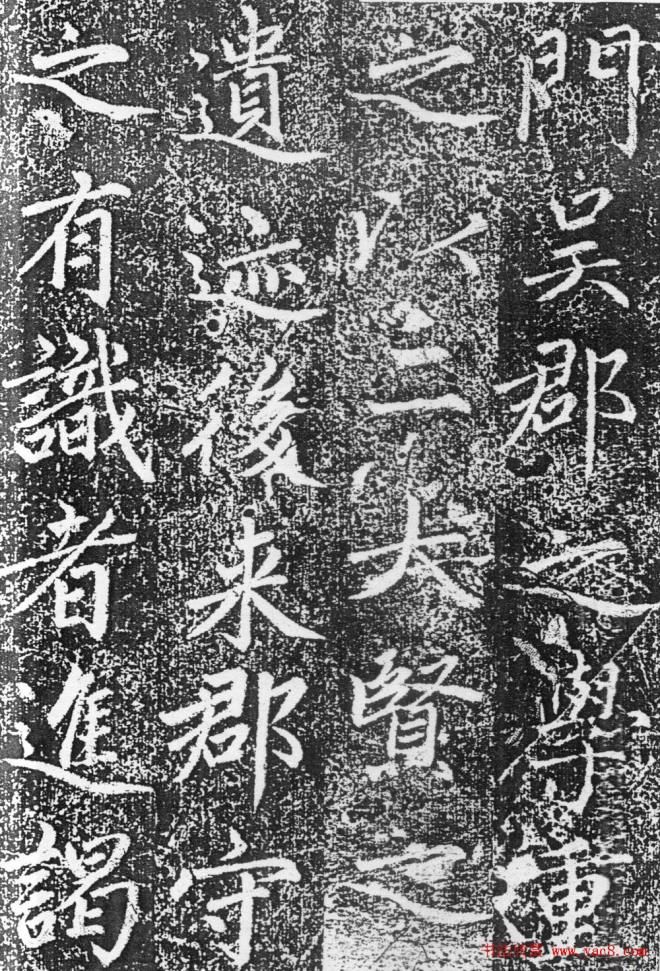 門吳郡之學
之以二大賢之
遺迹後来郡守
之有識者進謁
书法欣赏 www.yac8.com